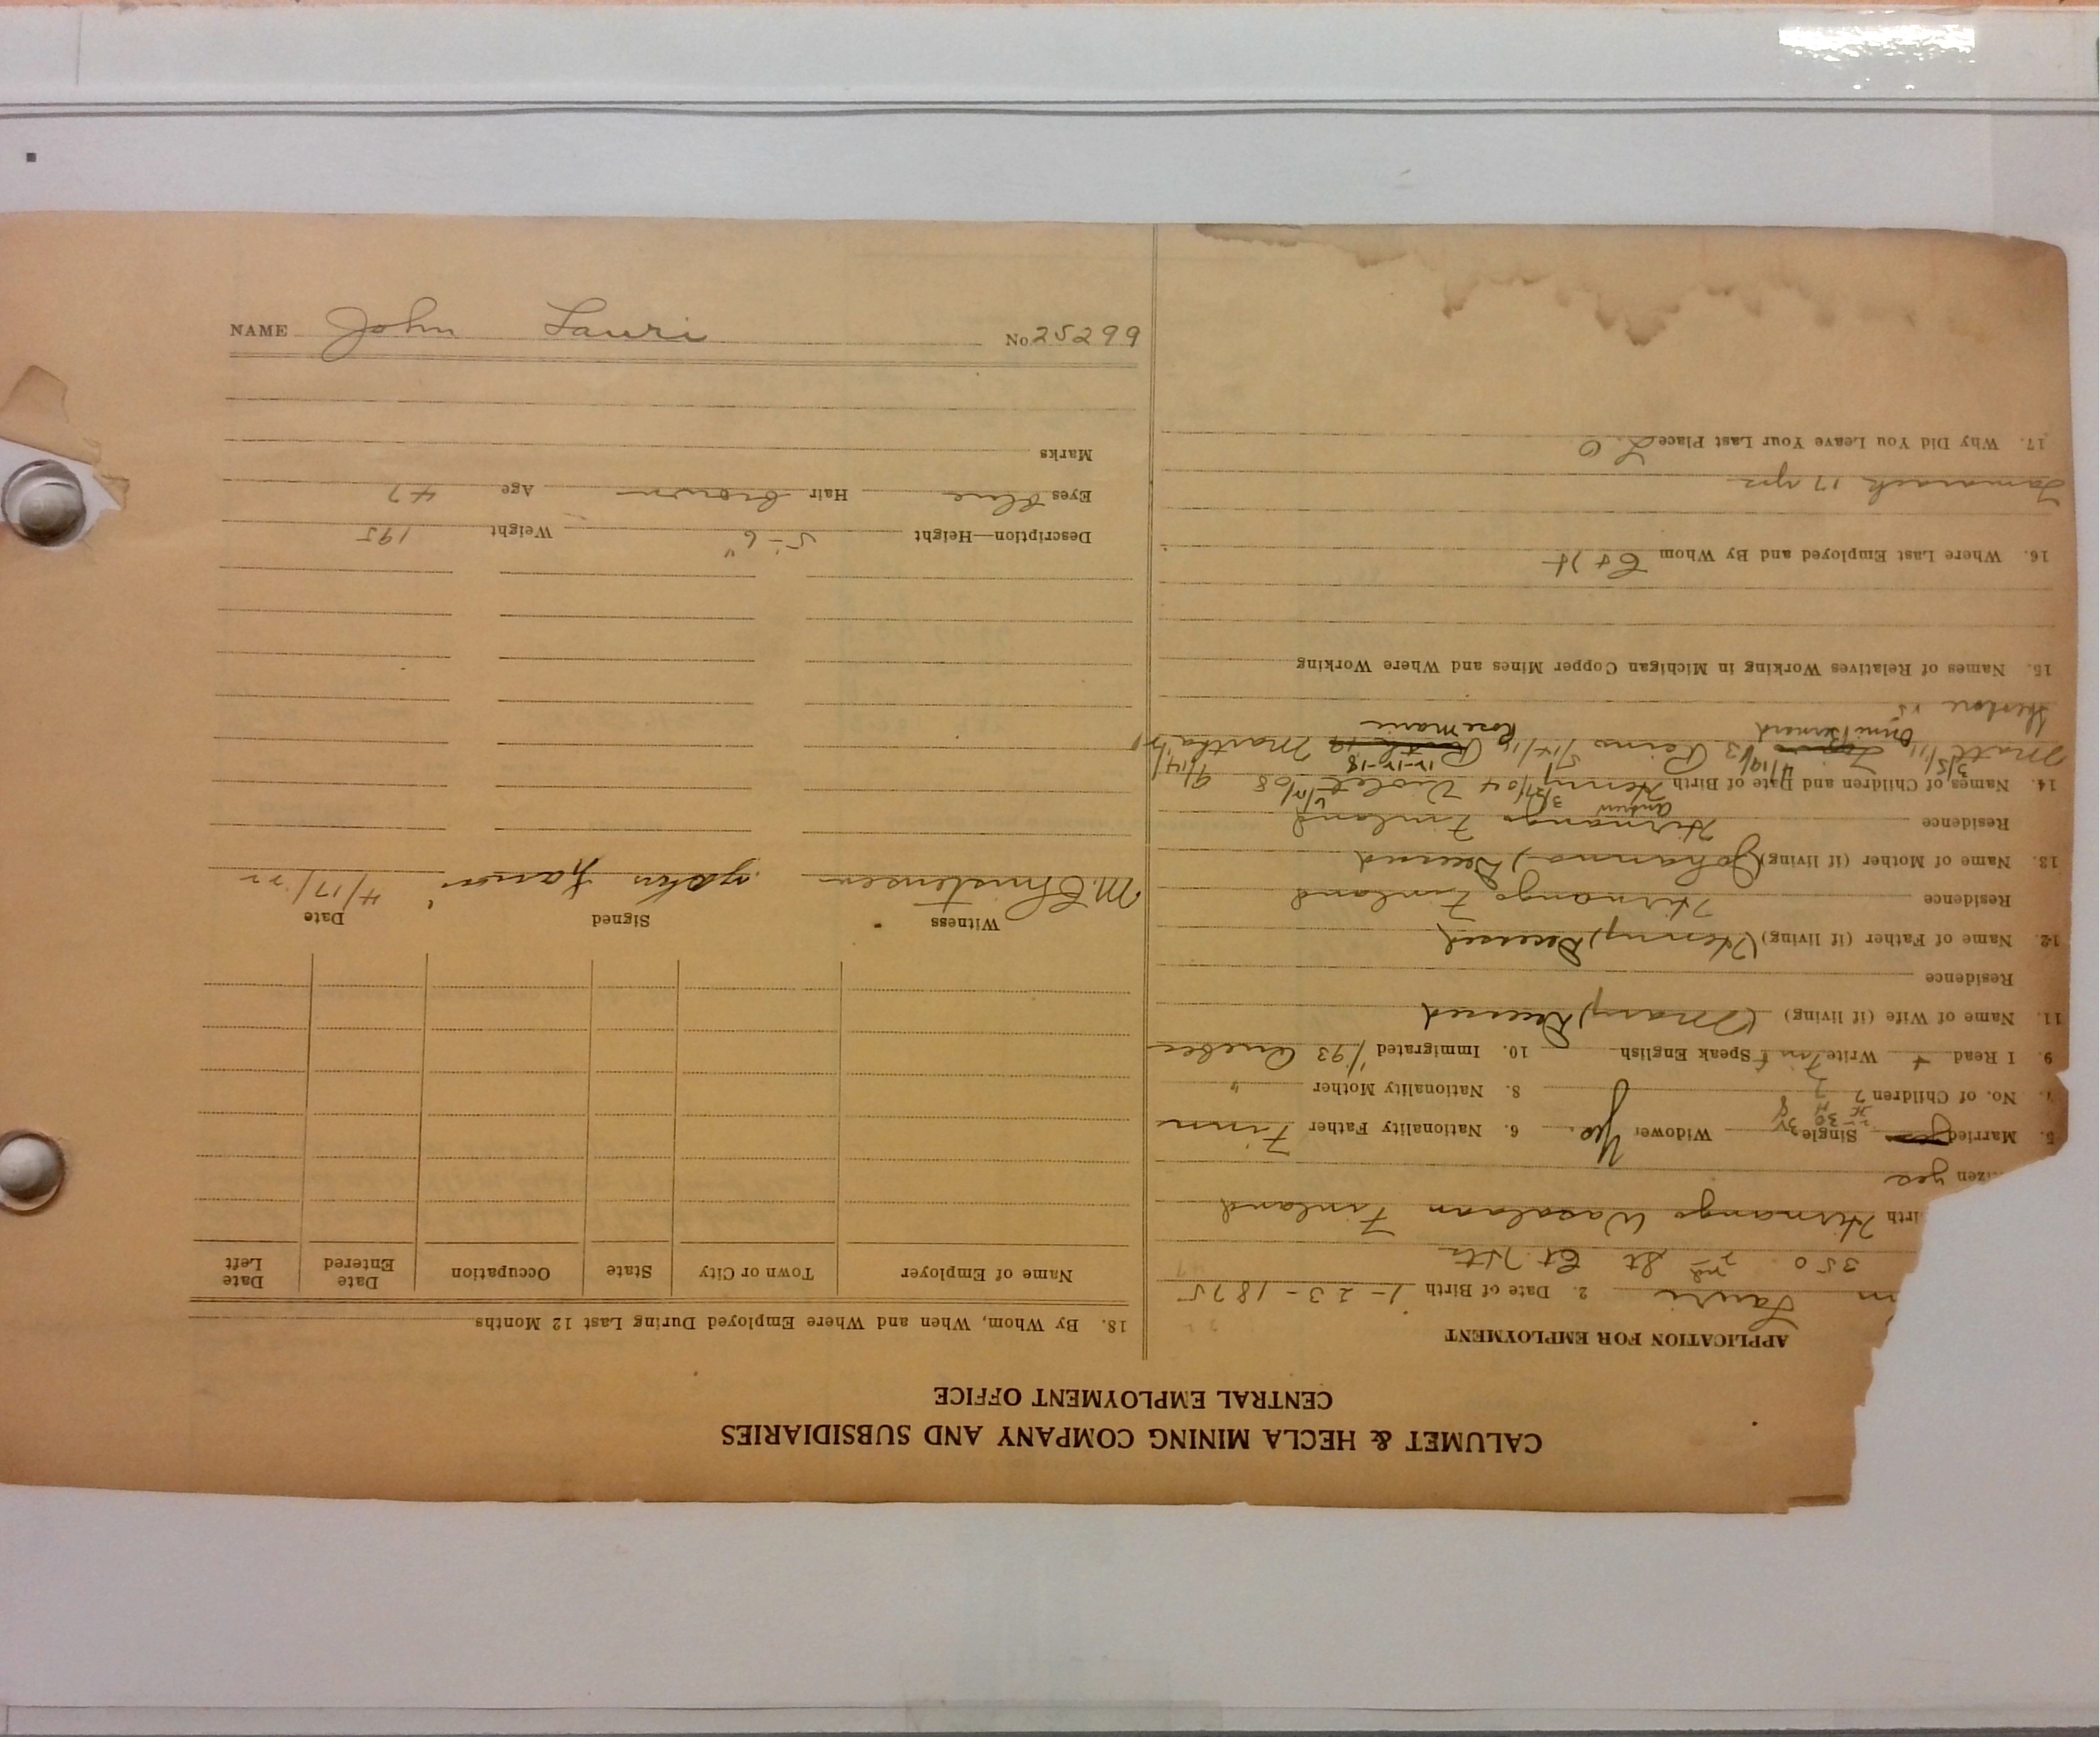 CALUMET & HECLA MINING COMPANY AND SUBSIDIARIES
CENTRAL EMPLOYMENT OFFICE
APPLICATION FOR EMPLOYMENT
n Lauri 2. Date of Birth 1-23-1875
350 St
irth Hirmango Wasalaan Finland
izen yes
5. Married Single Widower Yes. 6. Nationality Father Finn
7. No. of Children 7 8. Nationality Mother "
9. I Read + Write Speak English 10. Immigrated 1/93 Quebec
11. Name of Wife (if living) (Mary) Deceased
Residence
12. Name of Father (if living) (Henry) Deceased
Residence Hirmango Finland
13. Name of Mother (if living) (Johanna) Deceased
Residence Hirmango Finland
14. Names of Children and Date of Birth Henry Andrew 3/27/04 Violet 08
Matt 3/5/11 Bernard 4/19/13 Reino Rose Marie 12-12-18 Martha
15. Names of Relatives Working in Michigan Copper Mines and Where Working
16. Where Last Employed and By Whom C & H
Tamarack 17 yrs
17. Why Did You Leave Your Last Place L.O
18. By Whom, When and Where Employed During Last 12 Months
Name of Employer Town or City State Occupation Date Entered Date Left
Witness Signed Date
M. Christensen 4/17/22
Description—Height 5'-6" Weight 195
Eyes blue Hair brown Age 47
Marks
NAME John Lauri No 25299